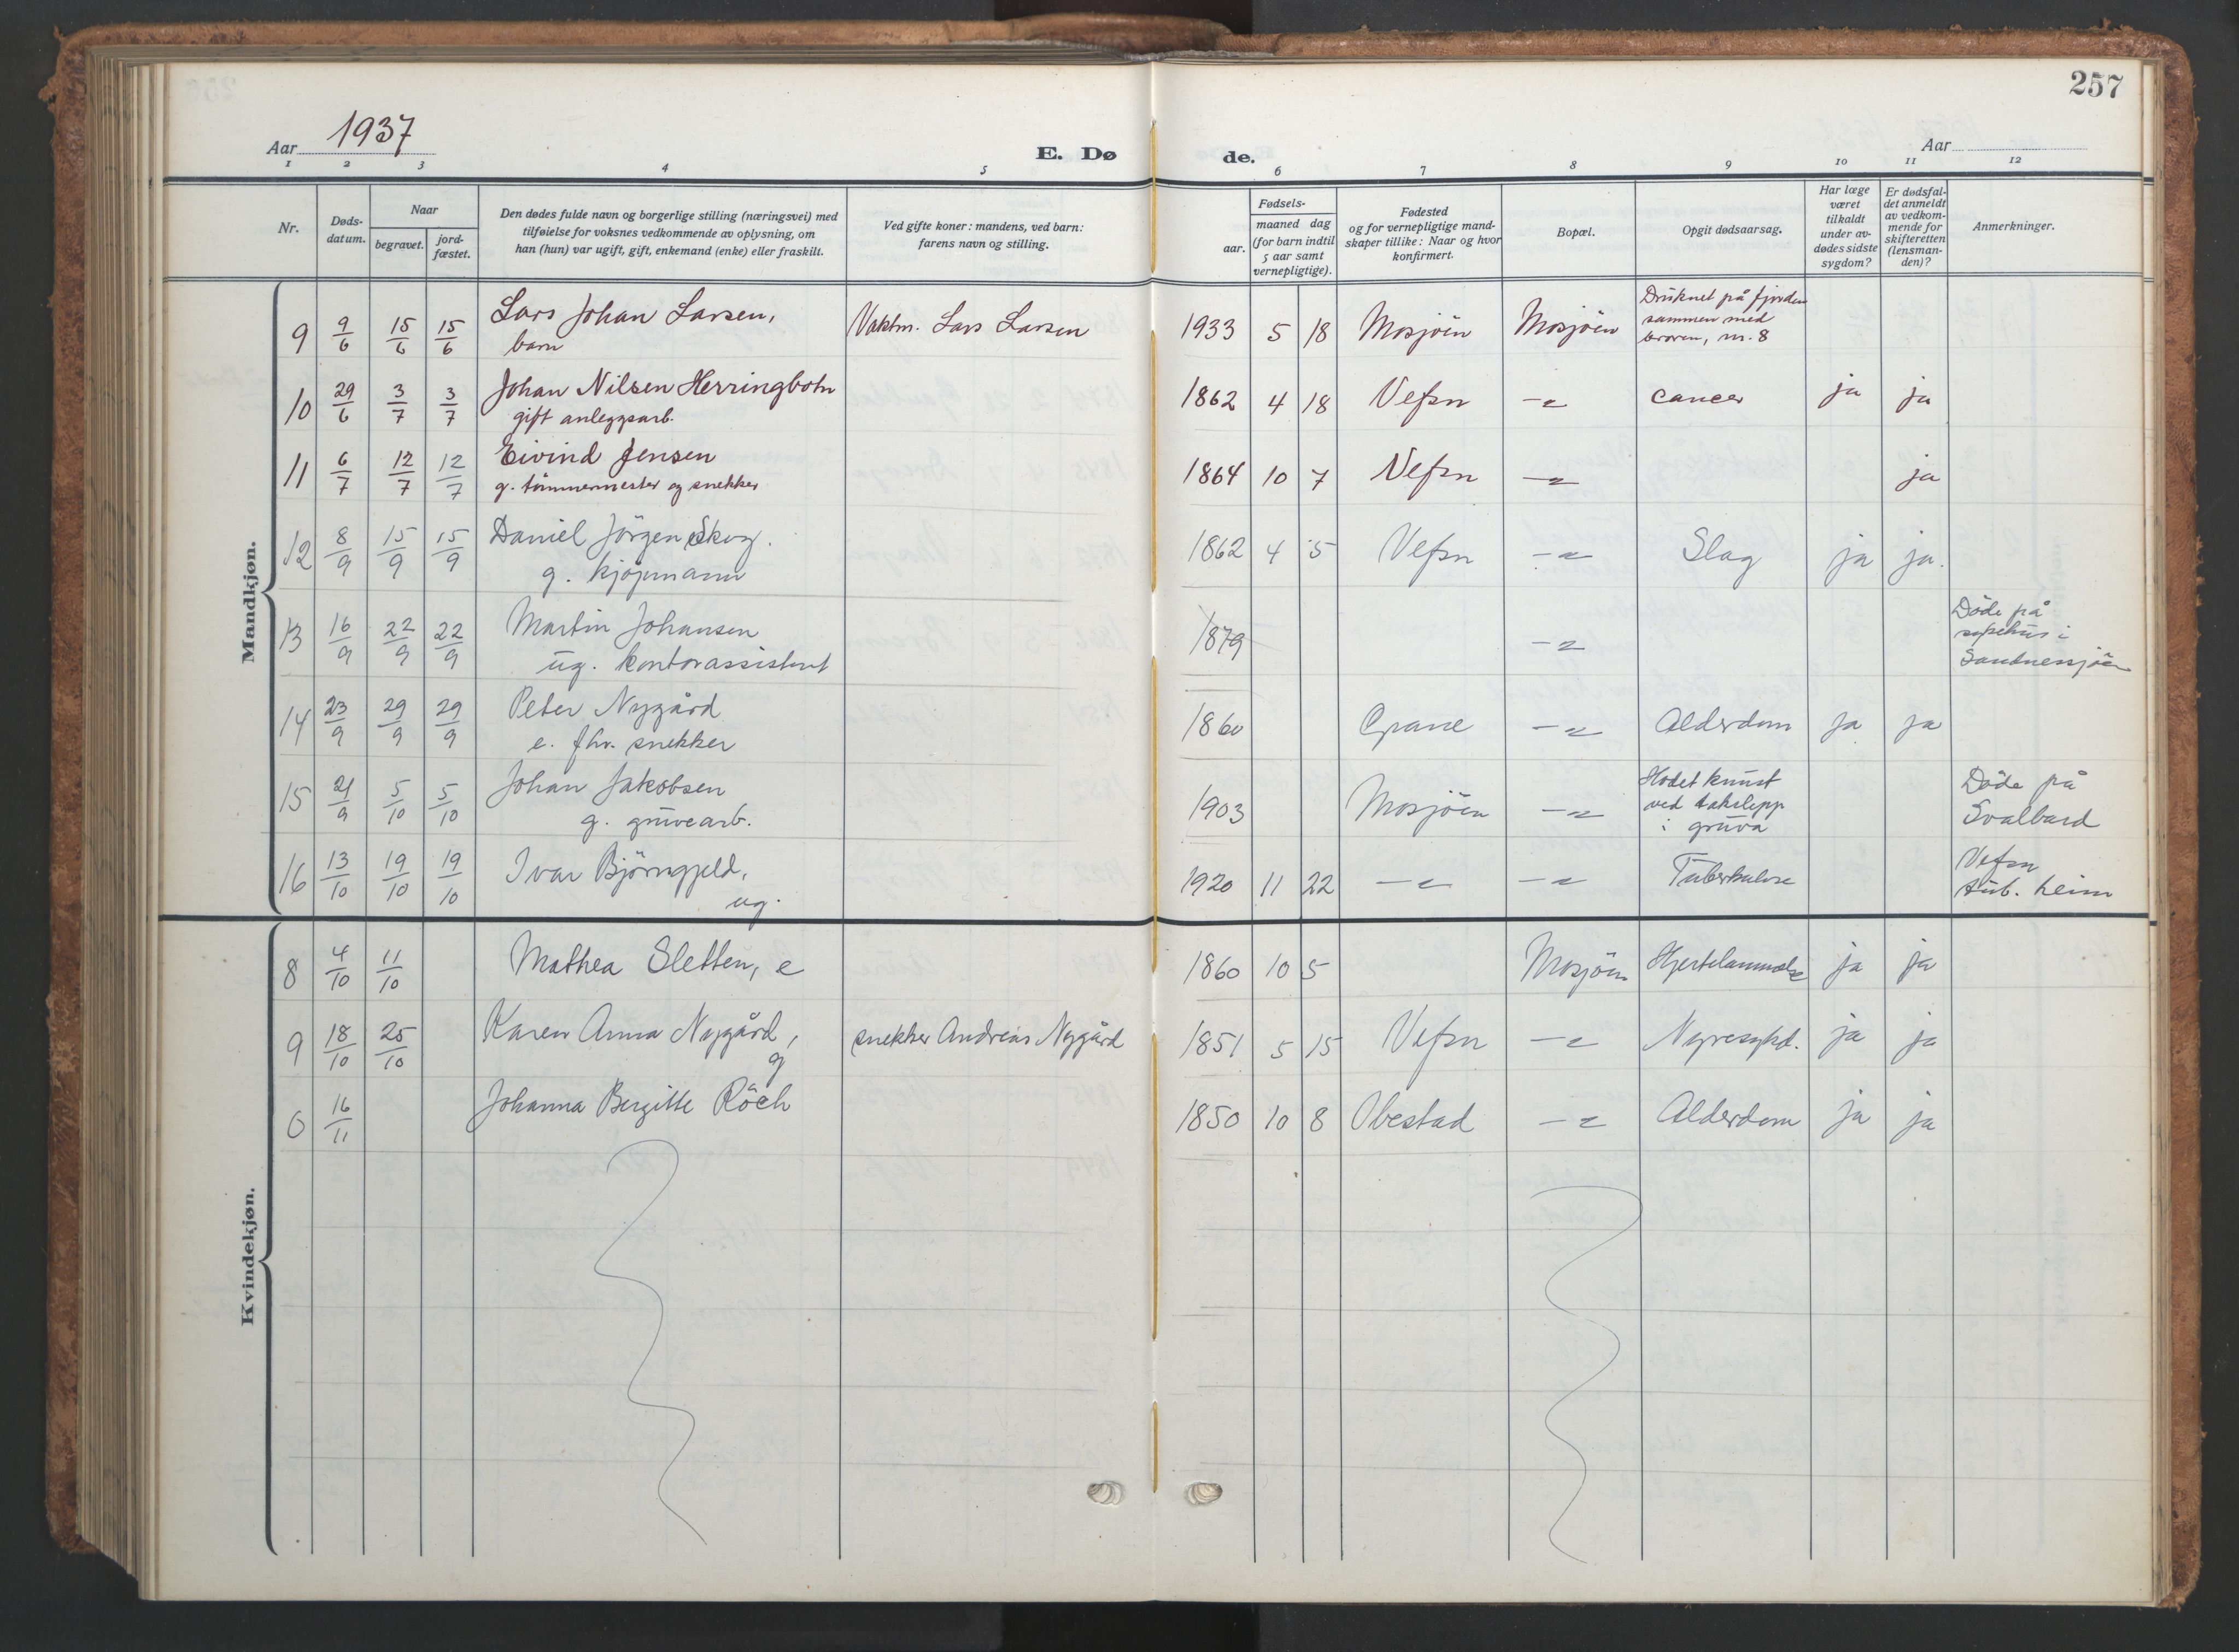 257
Aar 1937
E. Dø de.
Aar
1 2 3 4 5 6 7 8 9 10 11 12
Nr.
Døds-
datum.
Naar
begravet.
jord-
fæstet.
Den dødes fulde navn og borgerlige stilling (næringsvei) med
tilføielse for voksnes vedkommende av oplysning, om
han (hun) var ugift, gift, enkemand (enke) eller fraskilt.
Ved gifte koner: mandens, ved barn:
farens navn og stilling.
Fødsels-
aar.
maaned dag
(for barn indtil
5 aar samt
vernepligtige).
Fødested
og for vernepligtige mand-
skaper tillike: Naar og hvor
konfirmert.
Bopæl.
Opgit dødsaarsag.
Har læge
været
tilkaldt
under av-
dødes sidste
sygdom?
Er dødsfal-
det anmeldt
av vedkom-
mende for
skifteretten
(lensman-
den)?
Anmerkninger.
Mandkjøn.
9 9/6 15/6 15/6 Lars Johan Larsen, Vaktm. Lars Larsen 1933 5 18 Mosjöen Mosjöen Druknet på fjorden
barn sammen med
broren, nr. 8
10 29/6 3/7 3/7 Johan Nilsen Herringbotn 1862 4 18 Vefsn -"- cancer ja ja
gift anleggsarb.
11 6/7 12/7 12/7 Eivind Jensen 1864 10 7 Vefsn -"- ja
g. tömmermester og snekker
12 8/9 15/9 15/9 Daniel Jörgen Skog. 1862 4 5 Vefsn -"- Slag ja ja.
g. kjöpmann
13 16/9 22/9 22/9 Martin Johansen 1879 -"- Döde på
ug. kontorassistent sykehus i
Sandnessjöen
14 23/9 29/9 29/9 Peter Nygård 1860 Grane -"- Alderdom ja ja
e. fhv. snekker
15 21/9 5/10 5/10 Johan Jakobsen 1903 Mosjöen -"- Hodet knust Döde på
g. gruvearb. ved takslepp Svalbard
i gruva
16 13/10 19/10 19/10 Ivar Björngjeld, 1920 11 22 -"- -"- Tuberkulose Vefsn
ug. tub. heim
Kvindekjøn.
8 4/10 11/10 Mathea Sletten, e 1860 10 5 Mosjöen Hjertelammelse ja ja
9 18/10 25/10 Karen Anna Nygård, snekker Andreas Nygård 1851 5 15 Vefsn -"- Nyresykd. ja ja
g
0 16/11 Johanna Bergitte Röch 1850 10 8 Ibestad -"- Alderdom ja ja